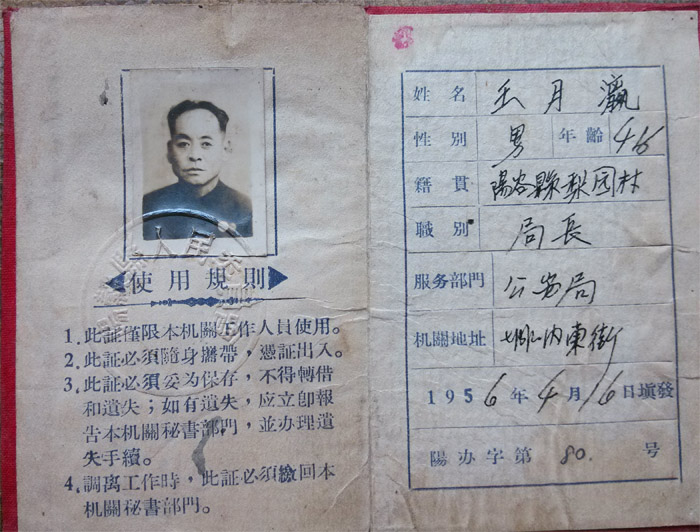 使用規則
1. 此証僅限本机關工作人員使用。
2. 此証必須隨身攜帶，憑証出入。
3. 此証必須妥为保存，不得轉借
和遺失；如有遺失，应立卽報
告本机關秘書部門，並办理遺
失手續。
4. 調离工作時，此証必須繳回本
机關秘書部門。
姓名 王月瀛
性别 男 年齡 46
籍貫 陽谷縣梨园村
職别 局長
服务部門 公安局
机關地址 城内東街
1956年4月16日塡發
陽办字第 80. 号